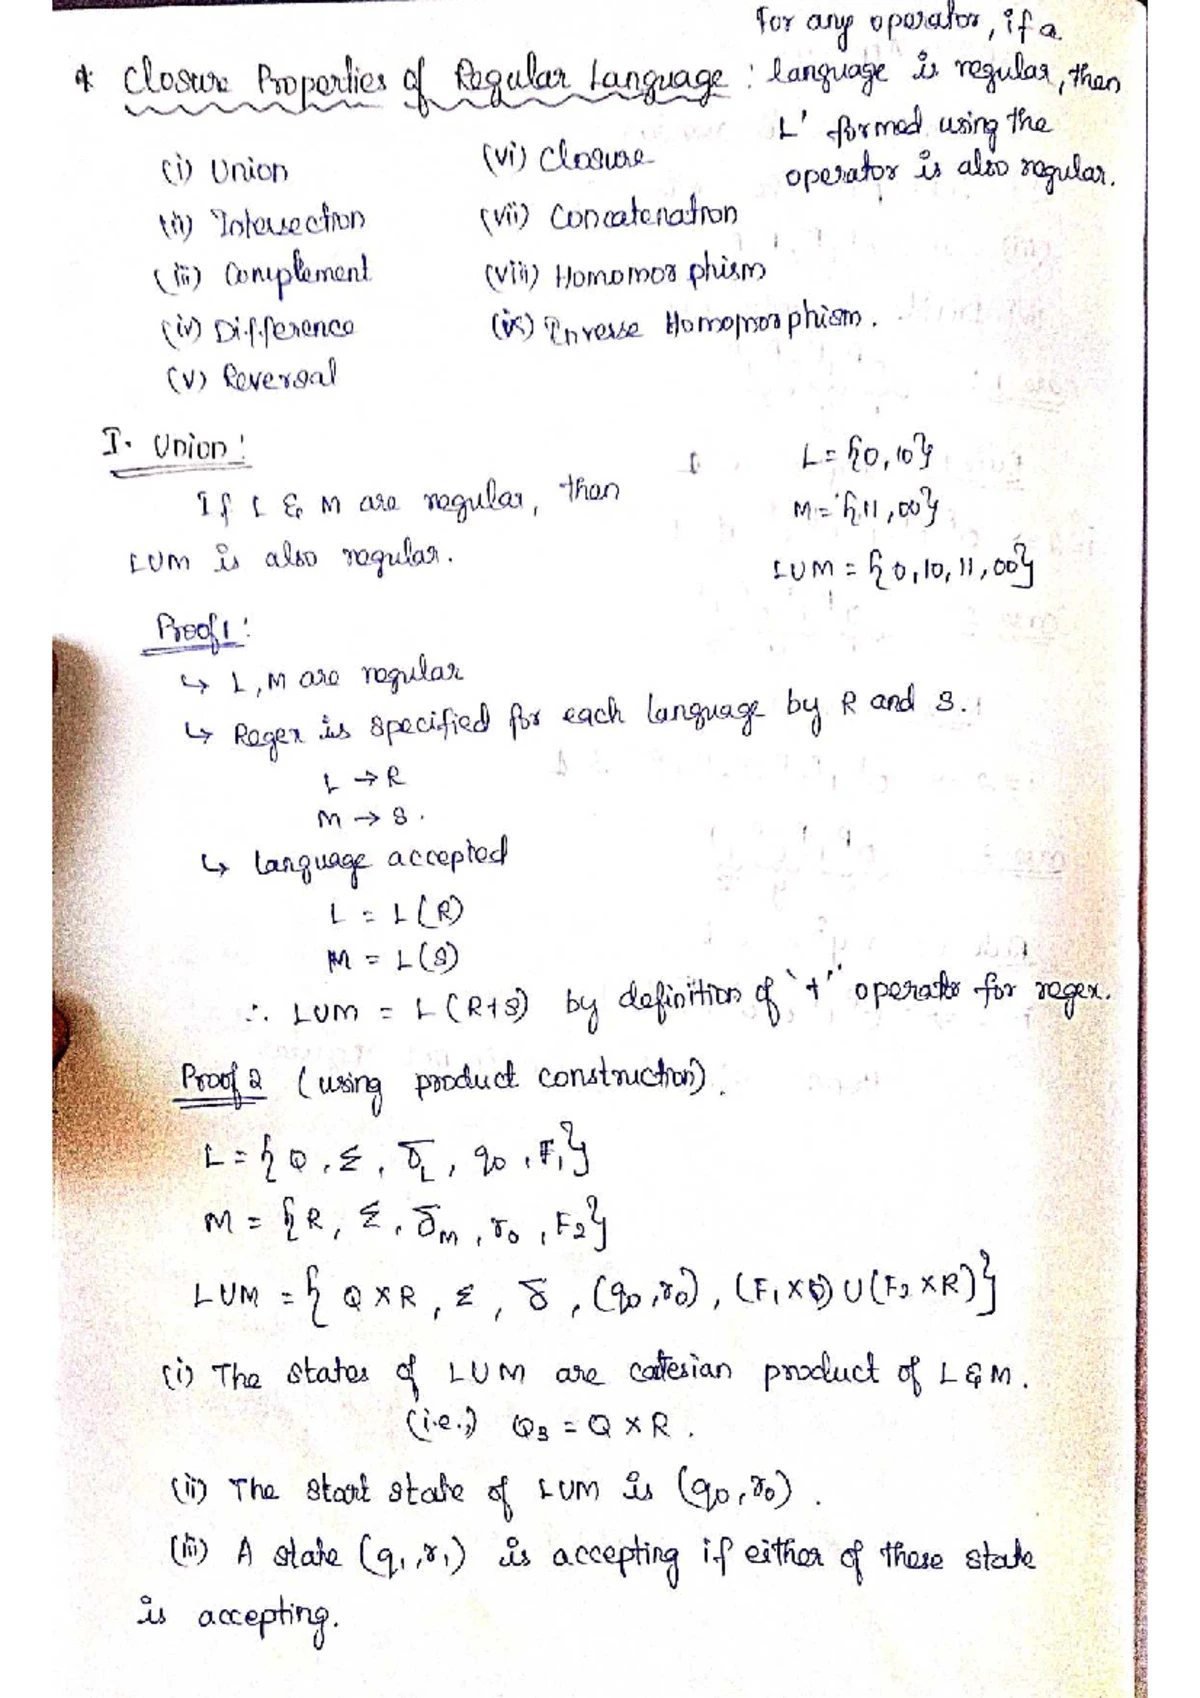 * Closure Properties of Regular Language : For any operator, if a
language is regular, then
L' formed using the
operator is also regular.
(i) Union
(vi) Closure
(ii) Intersection
(vii) Concatenation
(iii) Complement
(viii) Homomorphism
(iv) Difference
(ix) Inverse Homomorphism.
(v) Reversal
I. Union:
If L & M are regular, then
LUM is also regular.
L = {0, 10}
M = {11, 00}
LUM = {0, 10, 11, 00}
Proof 1:
↳ L, M are regular
↳ Regex is specified for each language by R and S.
L → R
M → S.
↳ Language accepted
L = L(R)
M = L(S)
∴ LUM = L(R+S) by definition of '+' operator for regex.
Proof 2 (using product construction).
L = {Q, Σ, δL, q0, F1}
M = {R, Σ, δM, r0, F2}
LUM = { Q × R, Σ, δ, (q0, r0), (F1 × ) U (F2 × R)}
(i) The states of LUM are catesian product of L & M.
(i.e.,) Q3 = Q × R.
(ii) The start state of LUM is (q0, r0).
(iii) A state (q1, r1) is accepting if either of these state
is accepting.